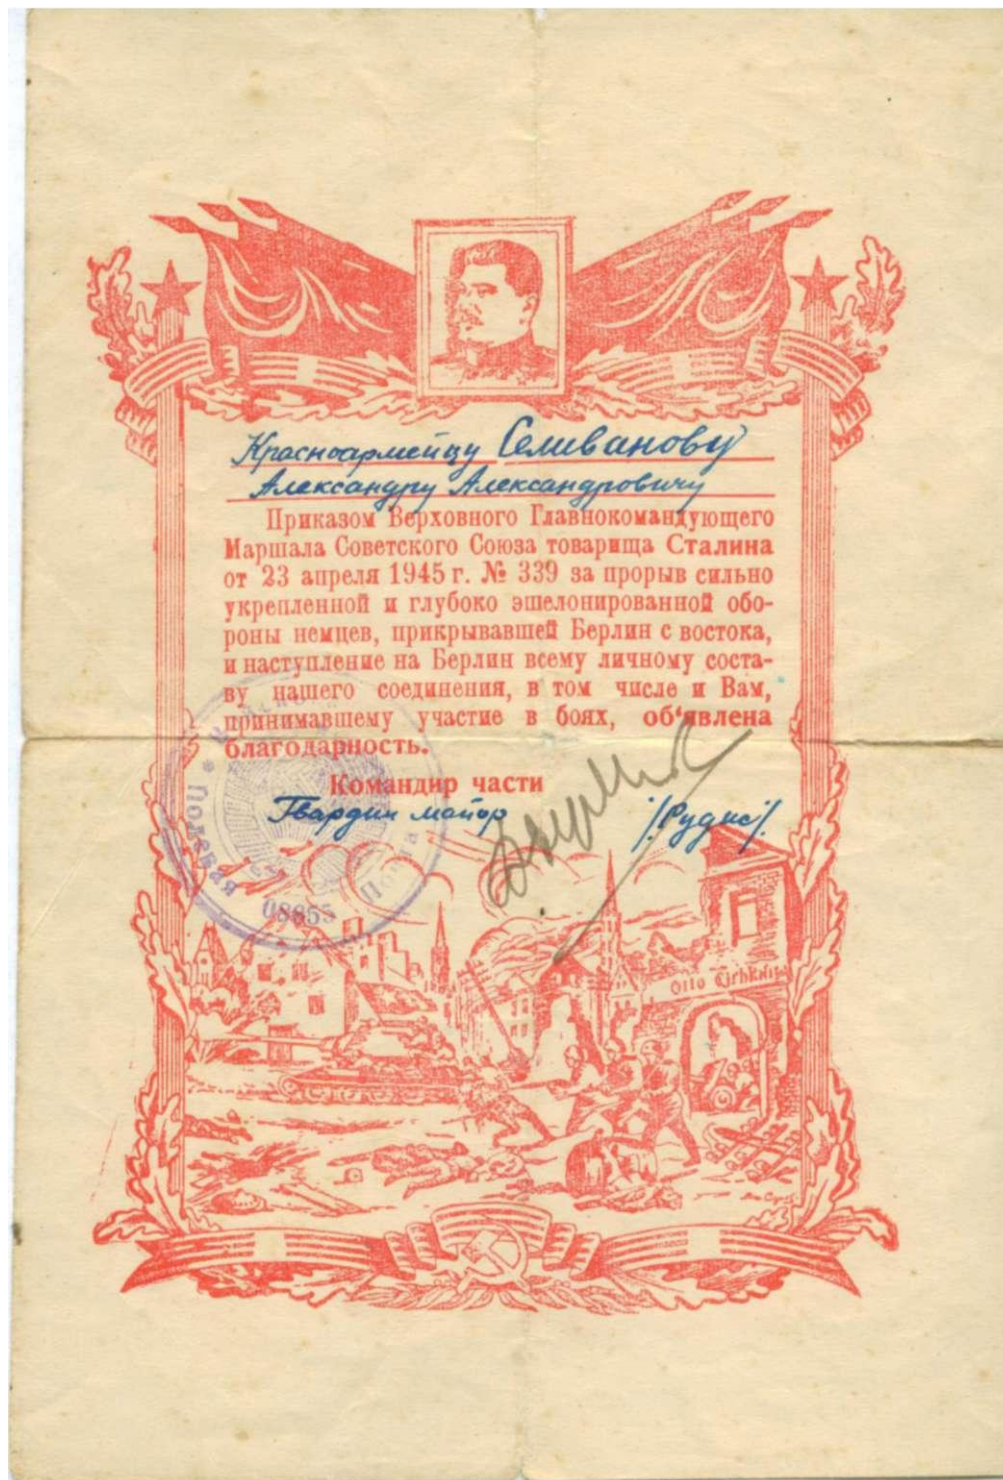 Красноармейцу Селиванову
Александру Александровичу
Приказом Верховного Главнокомандующего
Маршала Советского Союза товарища Сталина
от 23 апреля 1945 г. № 339 за прорыв сильно
укрепленной и глубоко эшелонированной обо-
роны немцев, прикрывавшей Берлин с востока,
и наступление на Берлин всему личному соста-
ву нашего соединения, в том числе и Вам,
принимавшему участие в боях, об‘явлена
благодарность.
Командир части
Гвардии майор /Рудис/.
Полевая Почта
08855
Otto